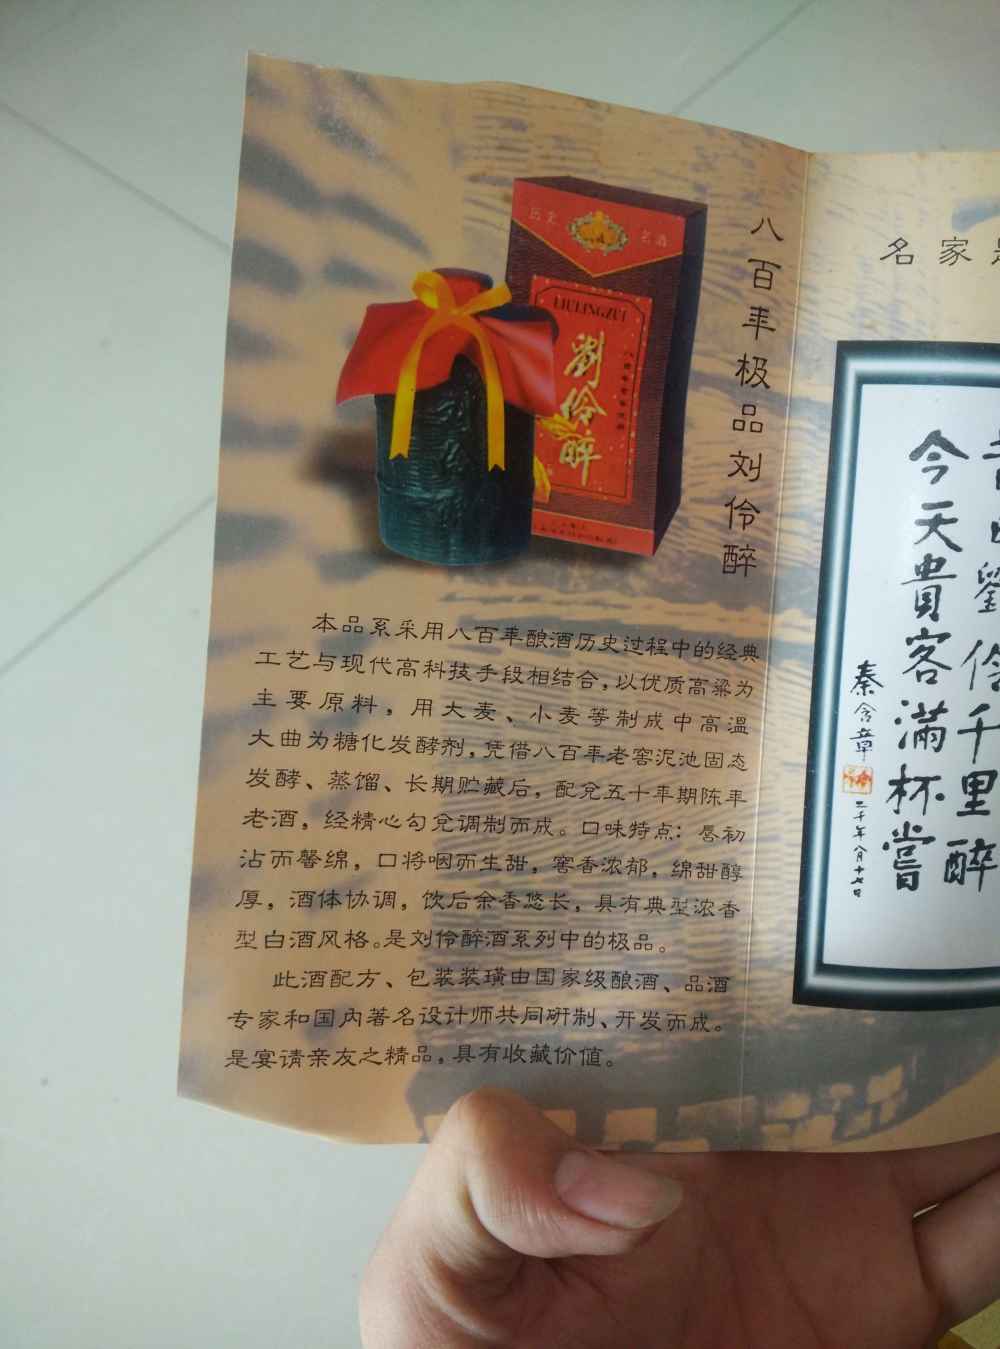 历史
名酒
LIULINGZUI
劉伶醉
八百年极品刘伶醉
本品系采用八百年酿酒历史过程中的经典
工艺与现代高科技手段相结合，以优质高粱为
主要原料，用大麦、小麦等制成中高温
大曲为糖化发酵剂，凭借八百年老窖泥池固态
发酵、蒸馏、长期贮藏后，配兑五十年期陈年
老酒，经精心勾兑调制而成。口味特点：唇初
沾而馨绵，口将咽而生甜，窖香浓郁，绵甜醇
厚，酒体协调，饮后余香悠长，具有典型浓香
型白酒风格。是刘伶醉酒系列中的极品。
此酒配方、包装装璜由国家级酿酒、品酒
专家和国内著名设计师共同研制、开发而成。
是宴请亲友之精品，具有收藏价值。
名家
劉伶千里醉
今天貴客滿杯嘗
秦含章
二〇〇年八月十七日